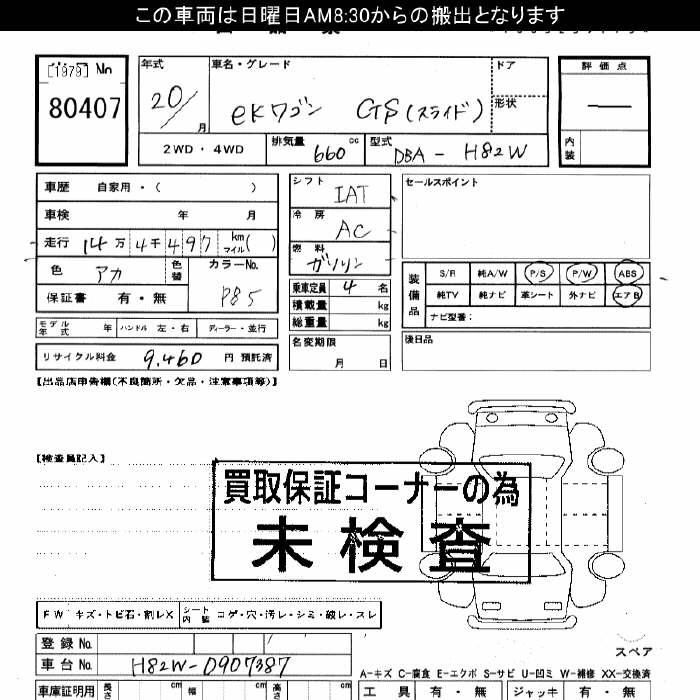 この車両は日曜日AM8:30からの搬出となります
[1979] No
80407
年式 車名・グレード ドア 評価点
20/月 eKワゴン GS(スライド) 形状 —
2WD・4WD 排気量 660 cc 型式 DBA - H82W 内装
車歴 自家用・( ) シフト IAT セールスポイント
車検 年 月 冷房 AC
走行 14万4千497 km マイル( ) 燃料 ガソリン
色 アカ 色替 カラーNo. P85
乗車定員 4 名
装備品 S/R 純A/W P/S P/W ABS
保証書 有・無 積載量 kg 純TV 純ナビ 革シート 外ナビ エアB
総重量 kg ナビ型番:
モデル年式 年 ハンドル 左・右 ディーラー・並行
名変期限 月 日 後日品
リサイクル料金 9,460 円 預託済
【出品店申告欄(不良箇所・欠品・注意事項等)】
【検査員記入】
買取保証コーナーの為
未検査
FW キズ・トビ石・割レX シート内装 コゲ・穴・汚レ・シミ・破レ・スレ
登録No.
スペア
車台No. H82W-0907387
A-キズ C-腐食 E-エクボ S-サビ U-凹ミ W-補修 XX-交換済
車庫証明用 長さ cm 幅 cm 高さ cm 工具 有・無 ジャッキ 有・無